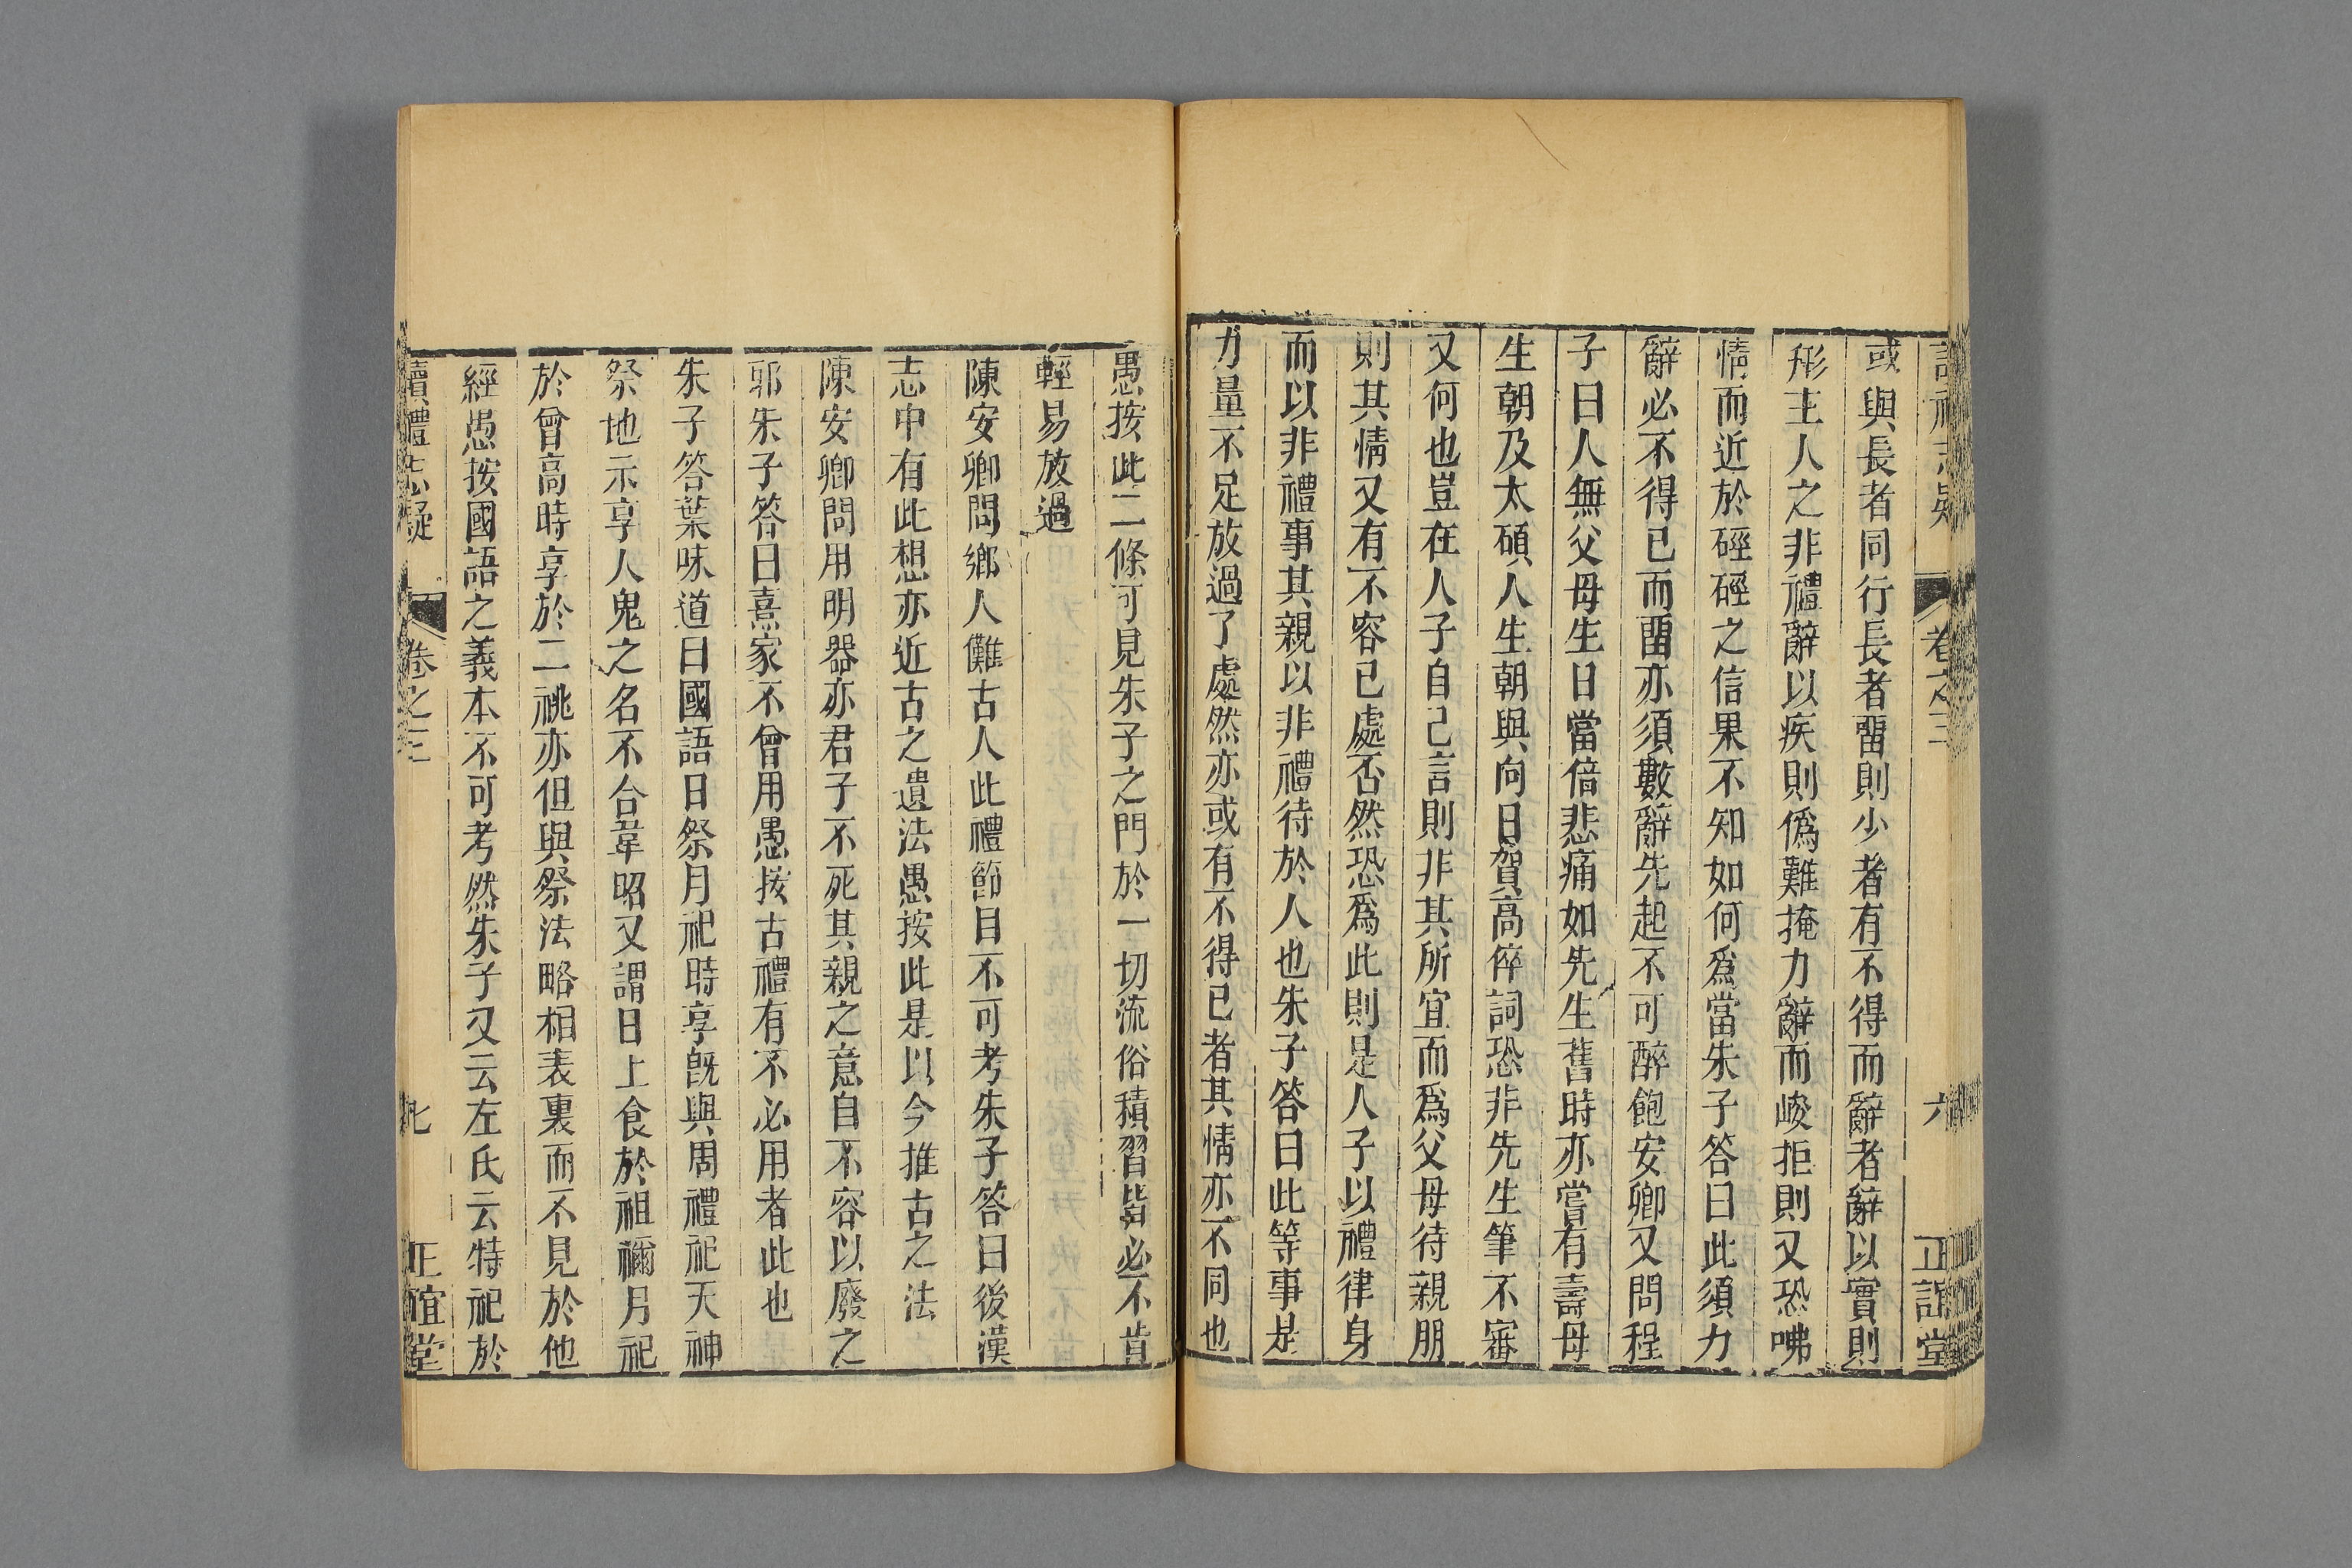 讀禮志疑 卷之三 六 正誼堂
或與長者同行長者畱則少者有不得而辭者辭以實則
形主人之非禮辭以疾則僞難掩力辭而峻拒則又恐咈
情而近於硜硜之信果不知如何爲當朱子答曰此須力
辭必不得已而畱亦須數辭先起不可醉飽安卿又問程
子曰人無父母生日當倍悲痛如先生舊時亦嘗有壽母
生朝及太碩人生朝與向日賀高倅詞恐非先生筆不審
又何也豈在人子自己言則非其所宜而爲父母待親朋
則其情又有不容已處否然恐爲此則是人子以禮律身
而以非禮事其親以非禮待於人也朱子答曰此等事是
力量不足放過了處然亦或有不得已者其情亦不同也
愚按此二條可見朱子之門於一切流俗積習皆必不肯
輕易放過
陳安卿問鄉人儺古人此禮節目不可考朱子答曰後漢
志中有此想亦近古之遺法愚按此是以今推古之法
陳安卿問用明器亦君子不死其親之意自不容以廢之
耶朱子答曰熹家不曾用愚按古禮有不必用者此也
朱子答葉味道曰國語日祭月祀時享旣與周禮祀天神
祭地示享人鬼之名不合韋昭又謂日上食於祖禰月祀
於曾高時享於二祧亦但與祭法略相表裏而不見於他
經愚按國語之義本不可考然朱子又云左氏云特祀於
讀禮志疑 卷之三 七 正誼堂